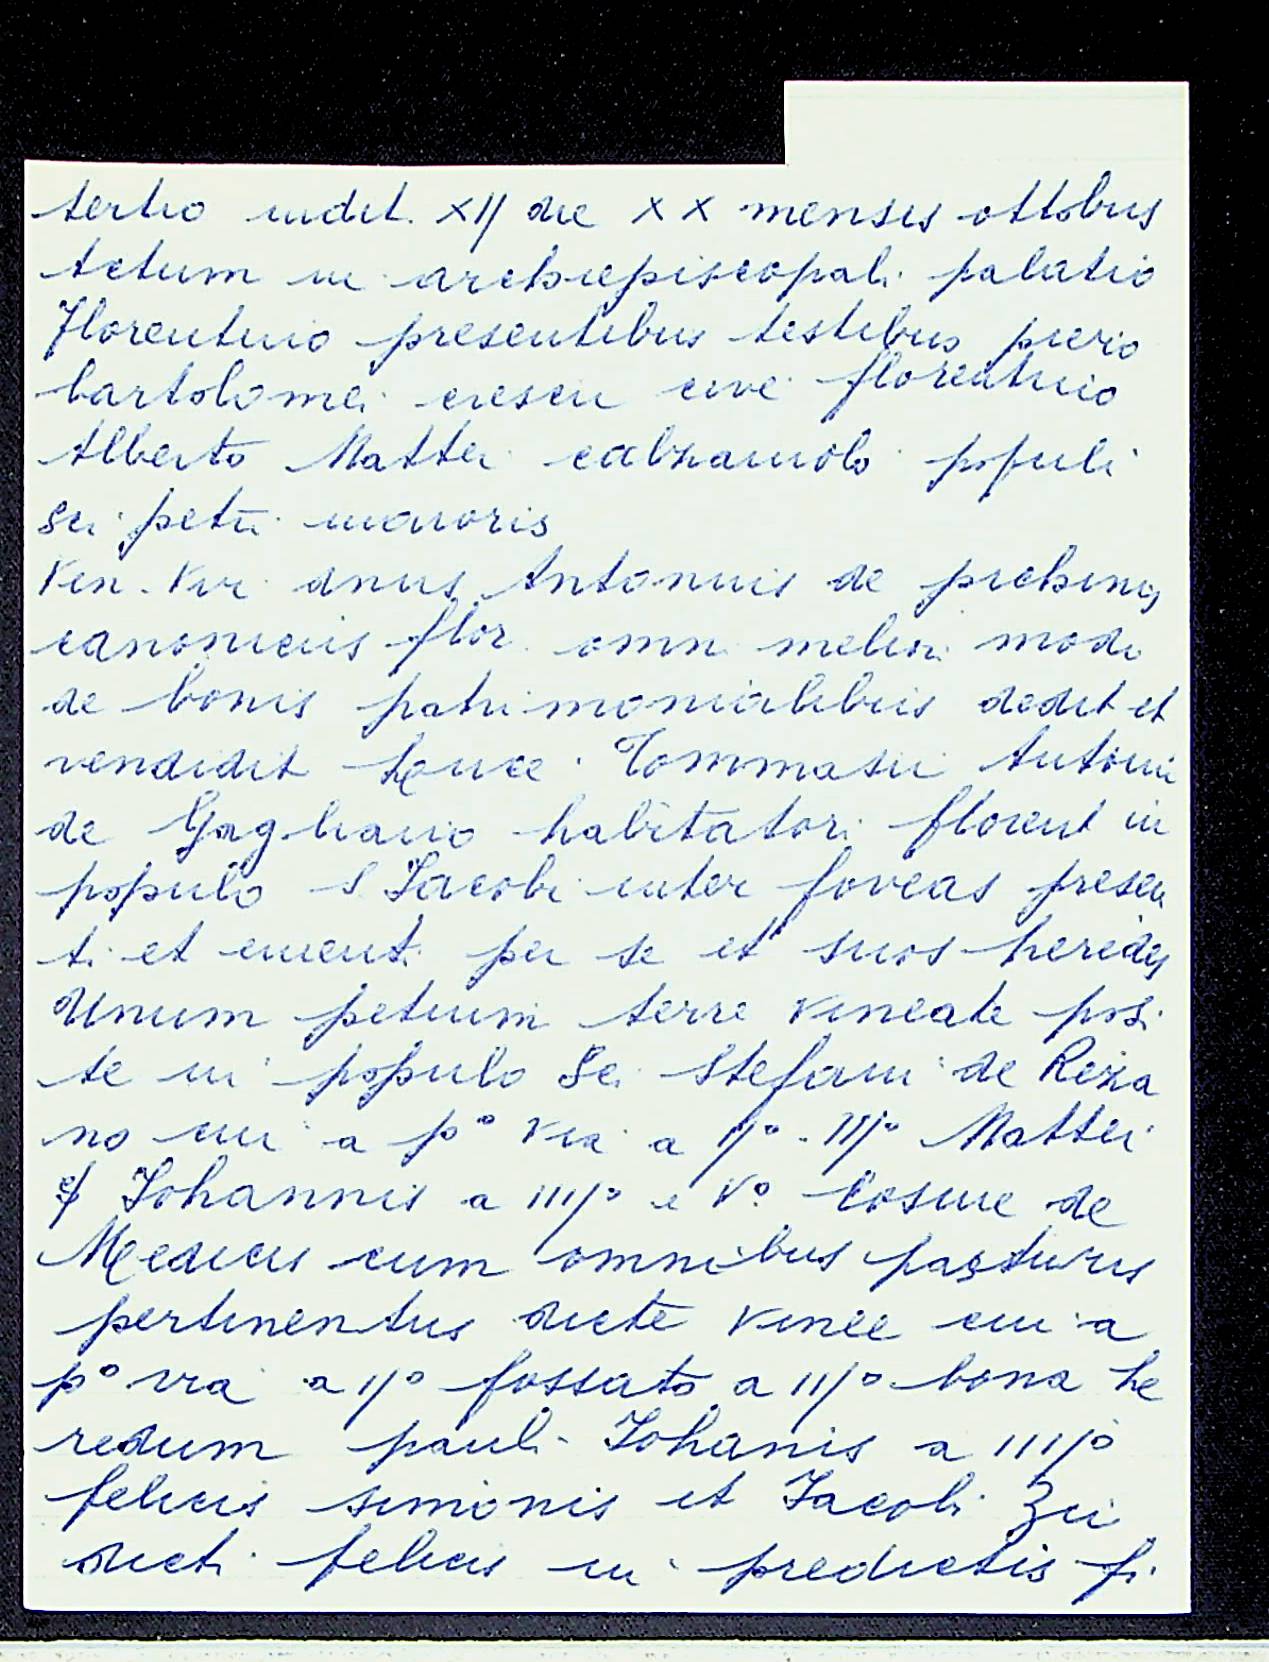 tertio indit. XIJ die XX mensis ottobris
Actum in archiepiscopali palatio
Florentino presentibus testibus piero
bartolomei cresci cive florentino
Alberto Mattei calzaiuolo populi
Sci petri maioris
Ven. Vir dnus Antonius de pichinis
canonicus flor. omni meliori modo
de bonis patrimonialibus dedit et
vendidit Tommasii Antonii
de Gagliano habitatori florent in
populo S Jacobi inter foveas presen
ti et ementi per se et suos heredes
Unum petium terre vineate posi
te in populo Sci Stefani de Reza
no cui a p° via a IJ° IIJ° Mattei
Johannis a IIIJ° e V° Cosme de
Medicis cum omnibus pasturis
pertinentiis dicte vinee cui a
p° via a IJ° fossato a IIJ° bona he
redum pauli Johanis a IIIJ°
felicis simonis et Jacobi
dicti felicis in predictis fi